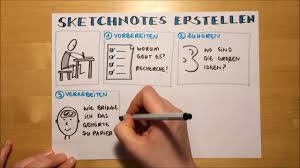 SKETCHNOTES ERSTELLEN
① VORBEREITEN
WORUM
GEHT ES?
RECHERCHE!
② ZUHÖREN
WO SIND
DIE GROßEN
IDEEN?
③ VERARBEITEN
WIE BRINGE
ICH DAS
GEHÖRTE
ZU PAPIER